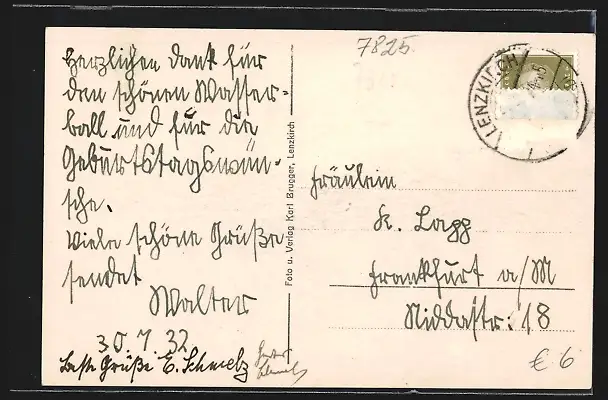 Herzlichen Dank für
den schönen Wasser-
ball und für die
Geburtstagswün-
sche.
Viele schöne Grüße
sendet
Walter
30.7.32
Beste Grüße E. Schmelz
Foto u. Verlag Karl Brugger, Lenzkirch
7825
LENZKIRCH
Fräulein
K. Lapp
Frankfurt a/M
Niddastr. 18
€ 6